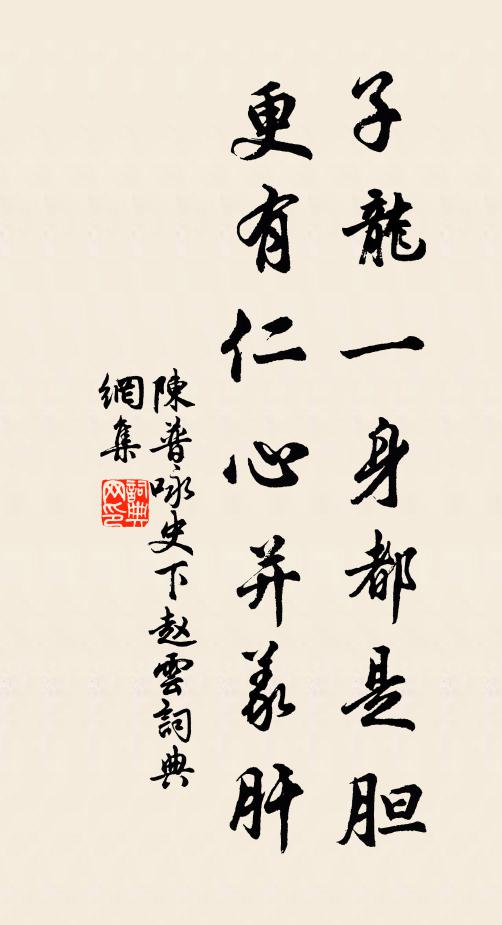 子龍一身都是胆
更有仁心并義肝
陳普咏史下赵雲詞典
網集
詞典
网印